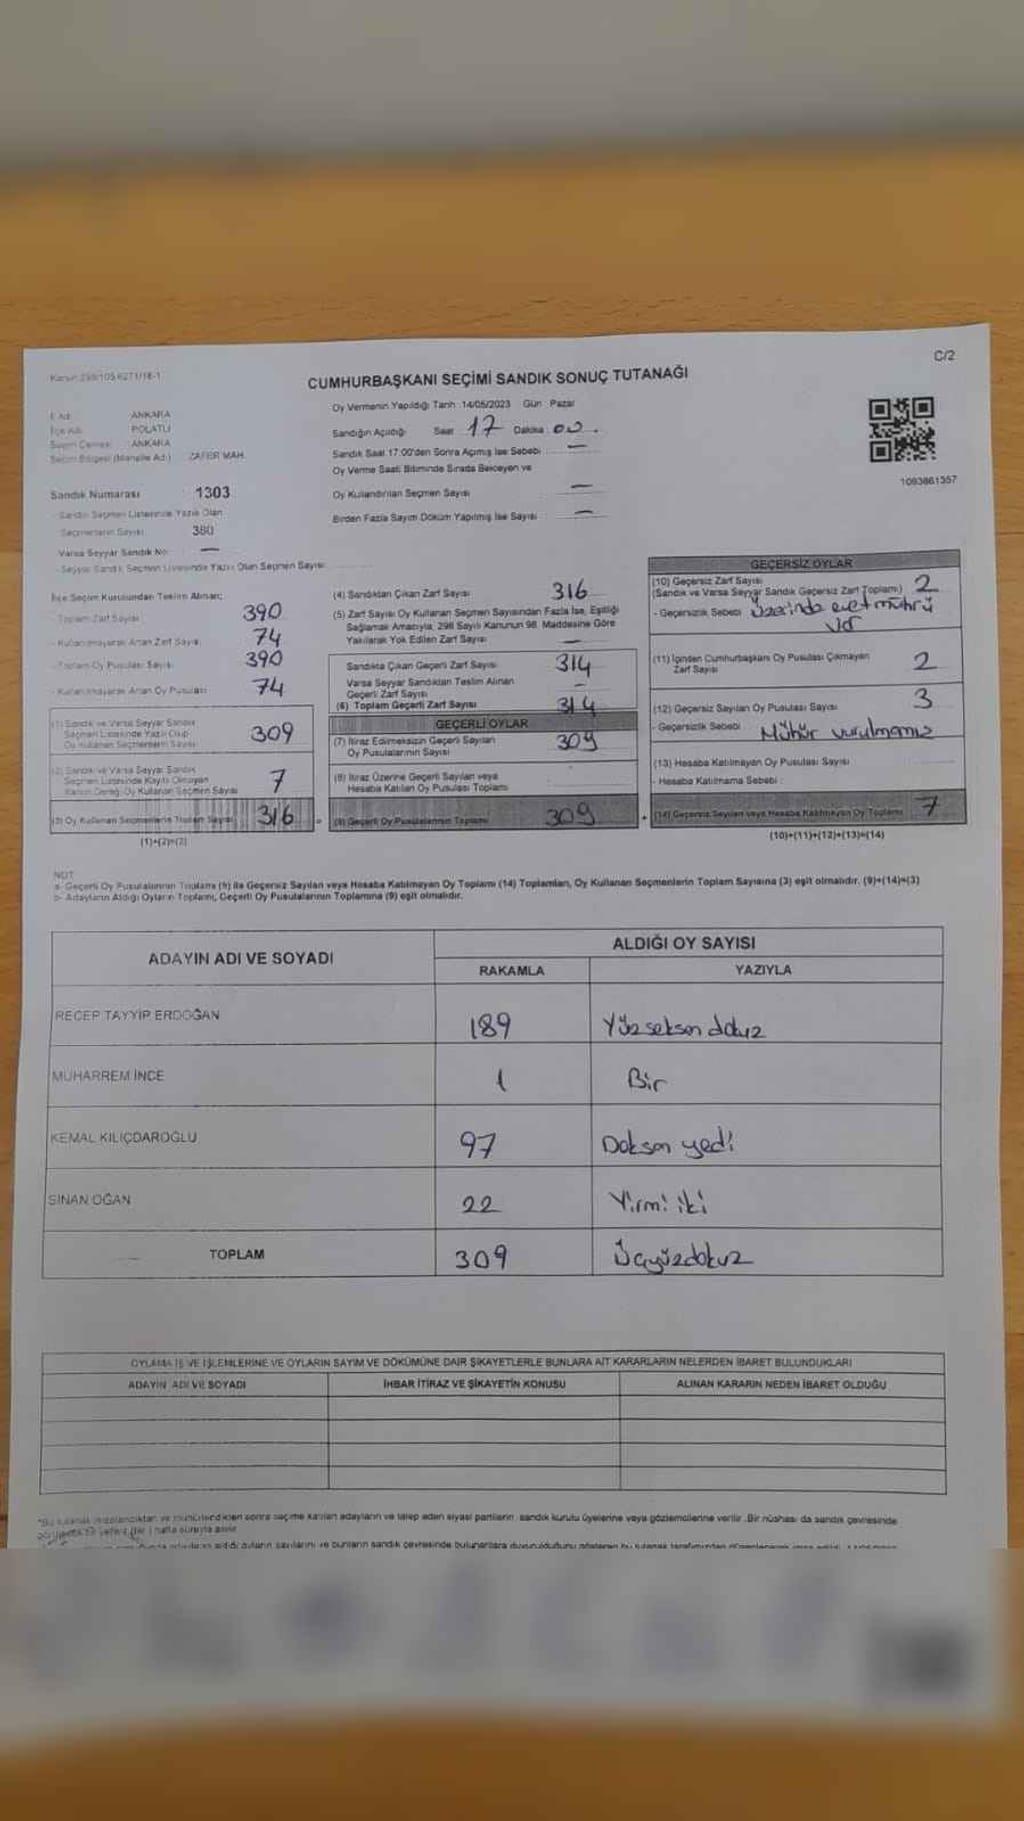 C/2
CUMHURBAŞKANI SEÇİMİ SANDIK SONUÇ TUTANAĞI
Oy Vermenin Yapıldığı Tarih :14/05/2023 Gün : Pazar
Sandığın Açıldığı Saat 17 Dakika : 00.
Sandık Saat 17:00'den Sonra Açımış İse Sebebi : —
Oy Verme Saati Bitiminde Sırada Bekleyen ve
Oy Kullandırılan Seçmen Sayısı —
Birden Fazla Sayım Döküm Yapılmış İse Sayısı —
1093861357
İl Adı : ANKARA
İlçe Adı : POLATLI
Seçim Çevresi : ANKARA
Seçim Bölgesi (Mahalle Adı) : ZAFER MAH.
Sandık Numarası 1303
- Sandık Seçmen Listesinde Yazılı Olan
Seçmenlerin Sayısı 380
Varsa Seyyar Sandık No: —
- Seyyar Sandık Seçmen Listesinde Yazılı Olan Seçmen Sayısı
İlçe Seçim Kurulundan Teslim Alınan;
- Toplam Zarf Sayısı 390
- Kullanılmayarak Artan Zarf Sayısı 74
- Toplam Oy Pusulası Sayısı 390
- Kullanılmayarak Artan Oy Pusulası 74
(1) Sandık ve Varsa Seyyar Sandık
Seçmen Listesinde Yazılı Olup
Oy Kullanan Seçmenlerin Sayısı 309
(2) Sandık ve Varsa Seyyar Sandık
Seçmen Listesinde Kayıtlı Olmayan
Kanun Gereği Oy Kullanan Seçmen Sayısı 7
(3) Oy Kullanan Seçmenlerin Toplam Sayısı 316
(1)+(2)=(3)
(4) Sandıktan Çıkan Zarf Sayısı 316
(5) Zarf Sayısı Oy Kullanan Seçmen Sayısından Fazla İse, Eşitliği
Sağlamak Amacıyla, 298 Sayılı Kanunun 98. Maddesine Göre
Yakılarak Yok Edilen Zarf Sayısı —
Sandıkta Çıkan Geçerli Zarf Sayısı 314
Varsa Seyyar Sandıktan Teslim Alınan
Geçerli Zarf Sayısı —
(6) Toplam Geçerli Zarf Sayısı 314
GEÇERLİ OYLAR
(7) İtiraz Edilmeksizin Geçerli Sayılan
Oy Pusulalarının Sayısı 309
(8) İtiraz Üzerine Geçerli Sayılan veya
Hesaba Katılan Oy Pusulası Toplamı
(9) Geçerli Oy Pusulalarının Toplamı 309
GEÇERSİZ OYLAR
(10) Geçersiz Zarf Sayısı
(Sandık ve Varsa Seyyar Sandık Geçersiz Zarf Toplamı) 2
- Geçersizlik Sebebi Üzerinde evet mührü
var
(11) İçinden Cumhurbaşkanı Oy Pusulası Çıkmayan
Zarf Sayısı 2
(12) Geçersiz Sayılan Oy Pusulası Sayısı 3
- Geçersizlik Sebebi Mühür vurulmamış
(13) Hesaba Katılmayan Oy Pusulası Sayısı
- Hesaba Katılmama Sebebi :
(14) Geçersiz Sayılan veya Hesaba Katılmayan Oy Toplamı 7
(10)+(11)+(12)+(13)=(14)
NOT
a- Geçerli Oy Pusulalarının Toplamı (9) ile Geçersiz Sayılan veya Hesaba Katılmayan Oy Toplamı (14) Toplamları, Oy Kullanan Seçmenlerin Toplam Sayısına (3) eşit olmalıdır. (9)+(14)=(3)
b- Adayların Aldığı Oyların Toplamı, Geçerli Oy Pusulalarının Toplamına (9) eşit olmalıdır.
ADAYIN ADI VE SOYADI ALDIĞI OY SAYISI
RAKAMLA YAZIYLA
RECEP TAYYİP ERDOĞAN 189 Yüzseksen dokuz
MUHARREM İNCE 1 Bir
KEMAL KILIÇDAROĞLU 97 Doksan yedi
SİNAN OĞAN 22 Yirmi iki
TOPLAM 309 Üçyüzdokuz
OYLAMA İŞ VE İŞLEMLERİNE VE OYLARIN SAYIM VE DÖKÜMÜNE DAİR ŞİKAYETLERLE BUNLARA AİT KARARLARIN NELERDEN İBARET BULUNDUKLARI
ADAYIN ADI VE SOYADI İHBAR İTİRAZ VE ŞİKAYETİN KONUSU ALINAN KARARIN NEDEN İBARET OLDUĞU
*Bu tutanak imzalandıktan ve mühürlendikten sonra seçime katılan adayların ve talep eden siyasi partilerin sandık kurulu üyelerine veya gözlemcilerine verilir. Bir nüshası da sandık çevresinde